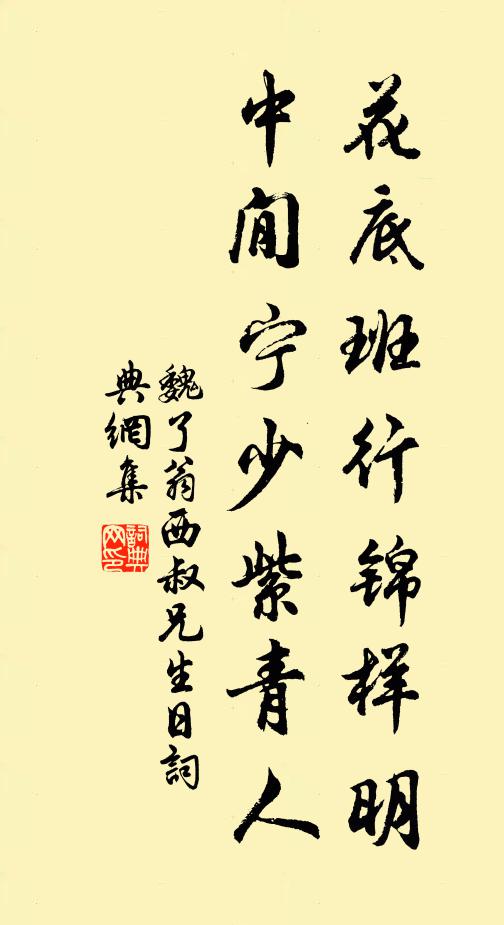 花底班行锦样明
中间宁少紫青人
魏了翁西叔兄生日詞
典網集
詞典网印